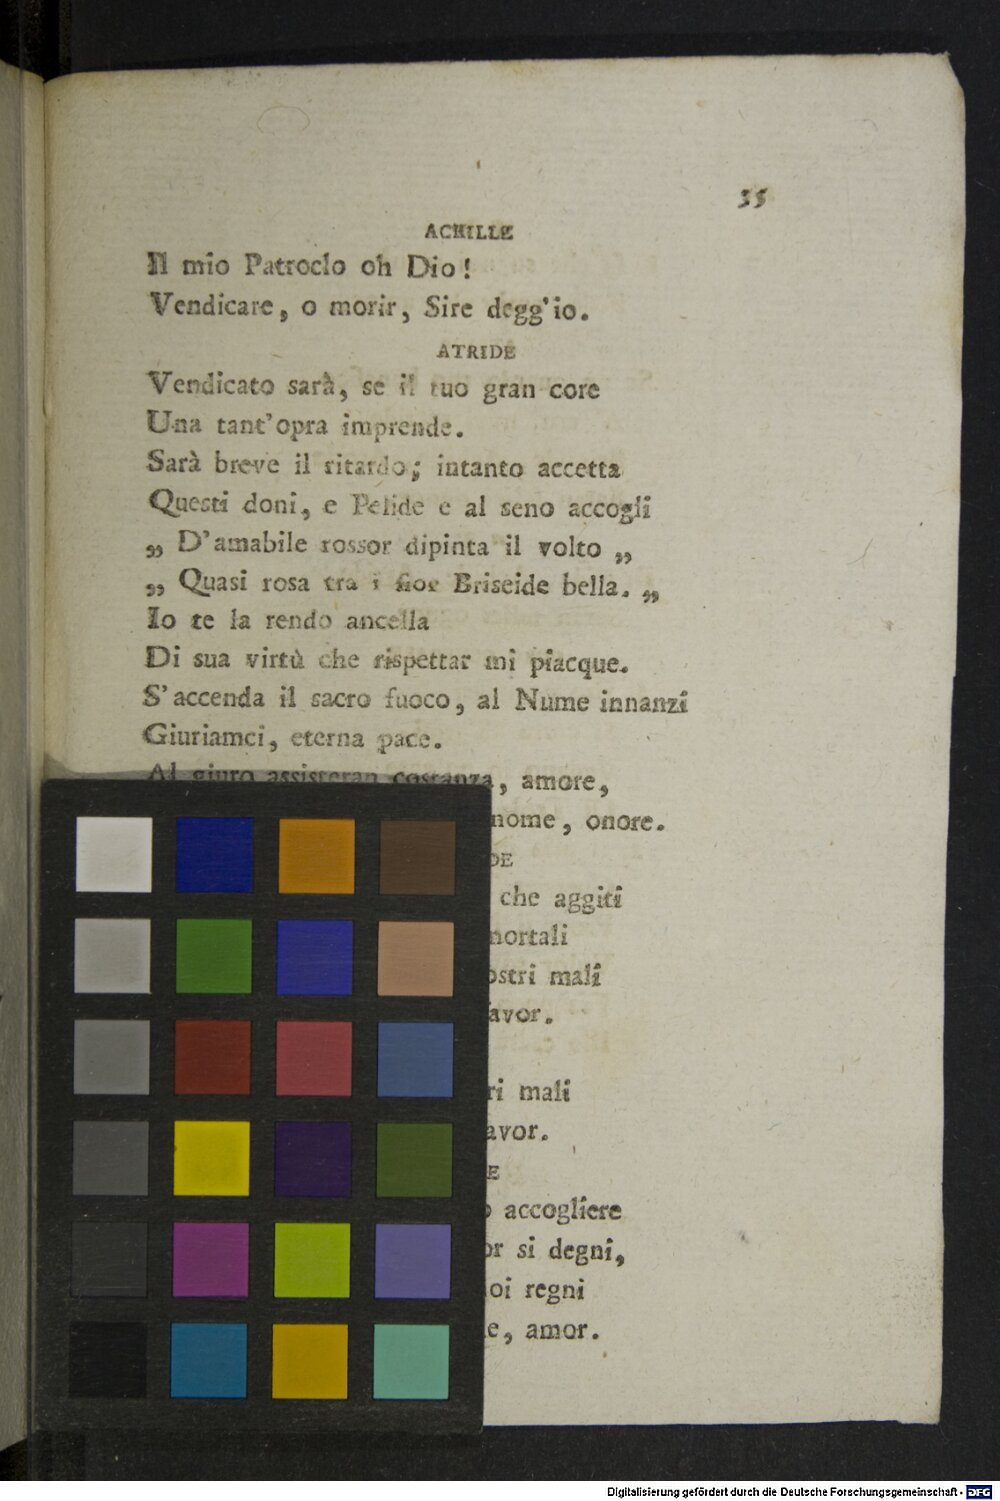 35
ACHILLE
Il mio Patroclo oh Dio!
Vendicare, o morir, Sire degg'io.
ATRIDE
Vendicato sarà, se il tuo gran core
Una tant'opra imprende.
Sarà breve il ritardo; intanto accetta
Questi doni, e Pelide e al seno accogli
„ D'amabile rossor dipinta il volto „
„ Quasi rosa tra i fior Briseide bella. „
Io te la rendo ancella
Di sua virtù che rispettar mi piacque.
S'accenda il sacro fuoco, al Nume innanzi
Giuriamci, eterna pace.
Al giuro assisteran costanza, amore,
nome, onore.
DE
che aggiti
mortali
ostri mali
favor.
ri mali
avor.
E
accogliere
or si degni,
oi regni
e, amor.
Digitalisierung gefördert durch die Deutsche Forschungsgemeinschaft - DFG